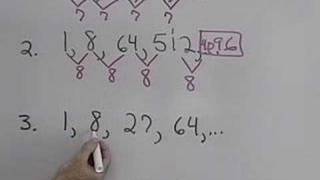 ? ? ? ?
2. 1, 8, 64, 512, 4096
8 8 8 8
3. 1, 8, 27, 64,...